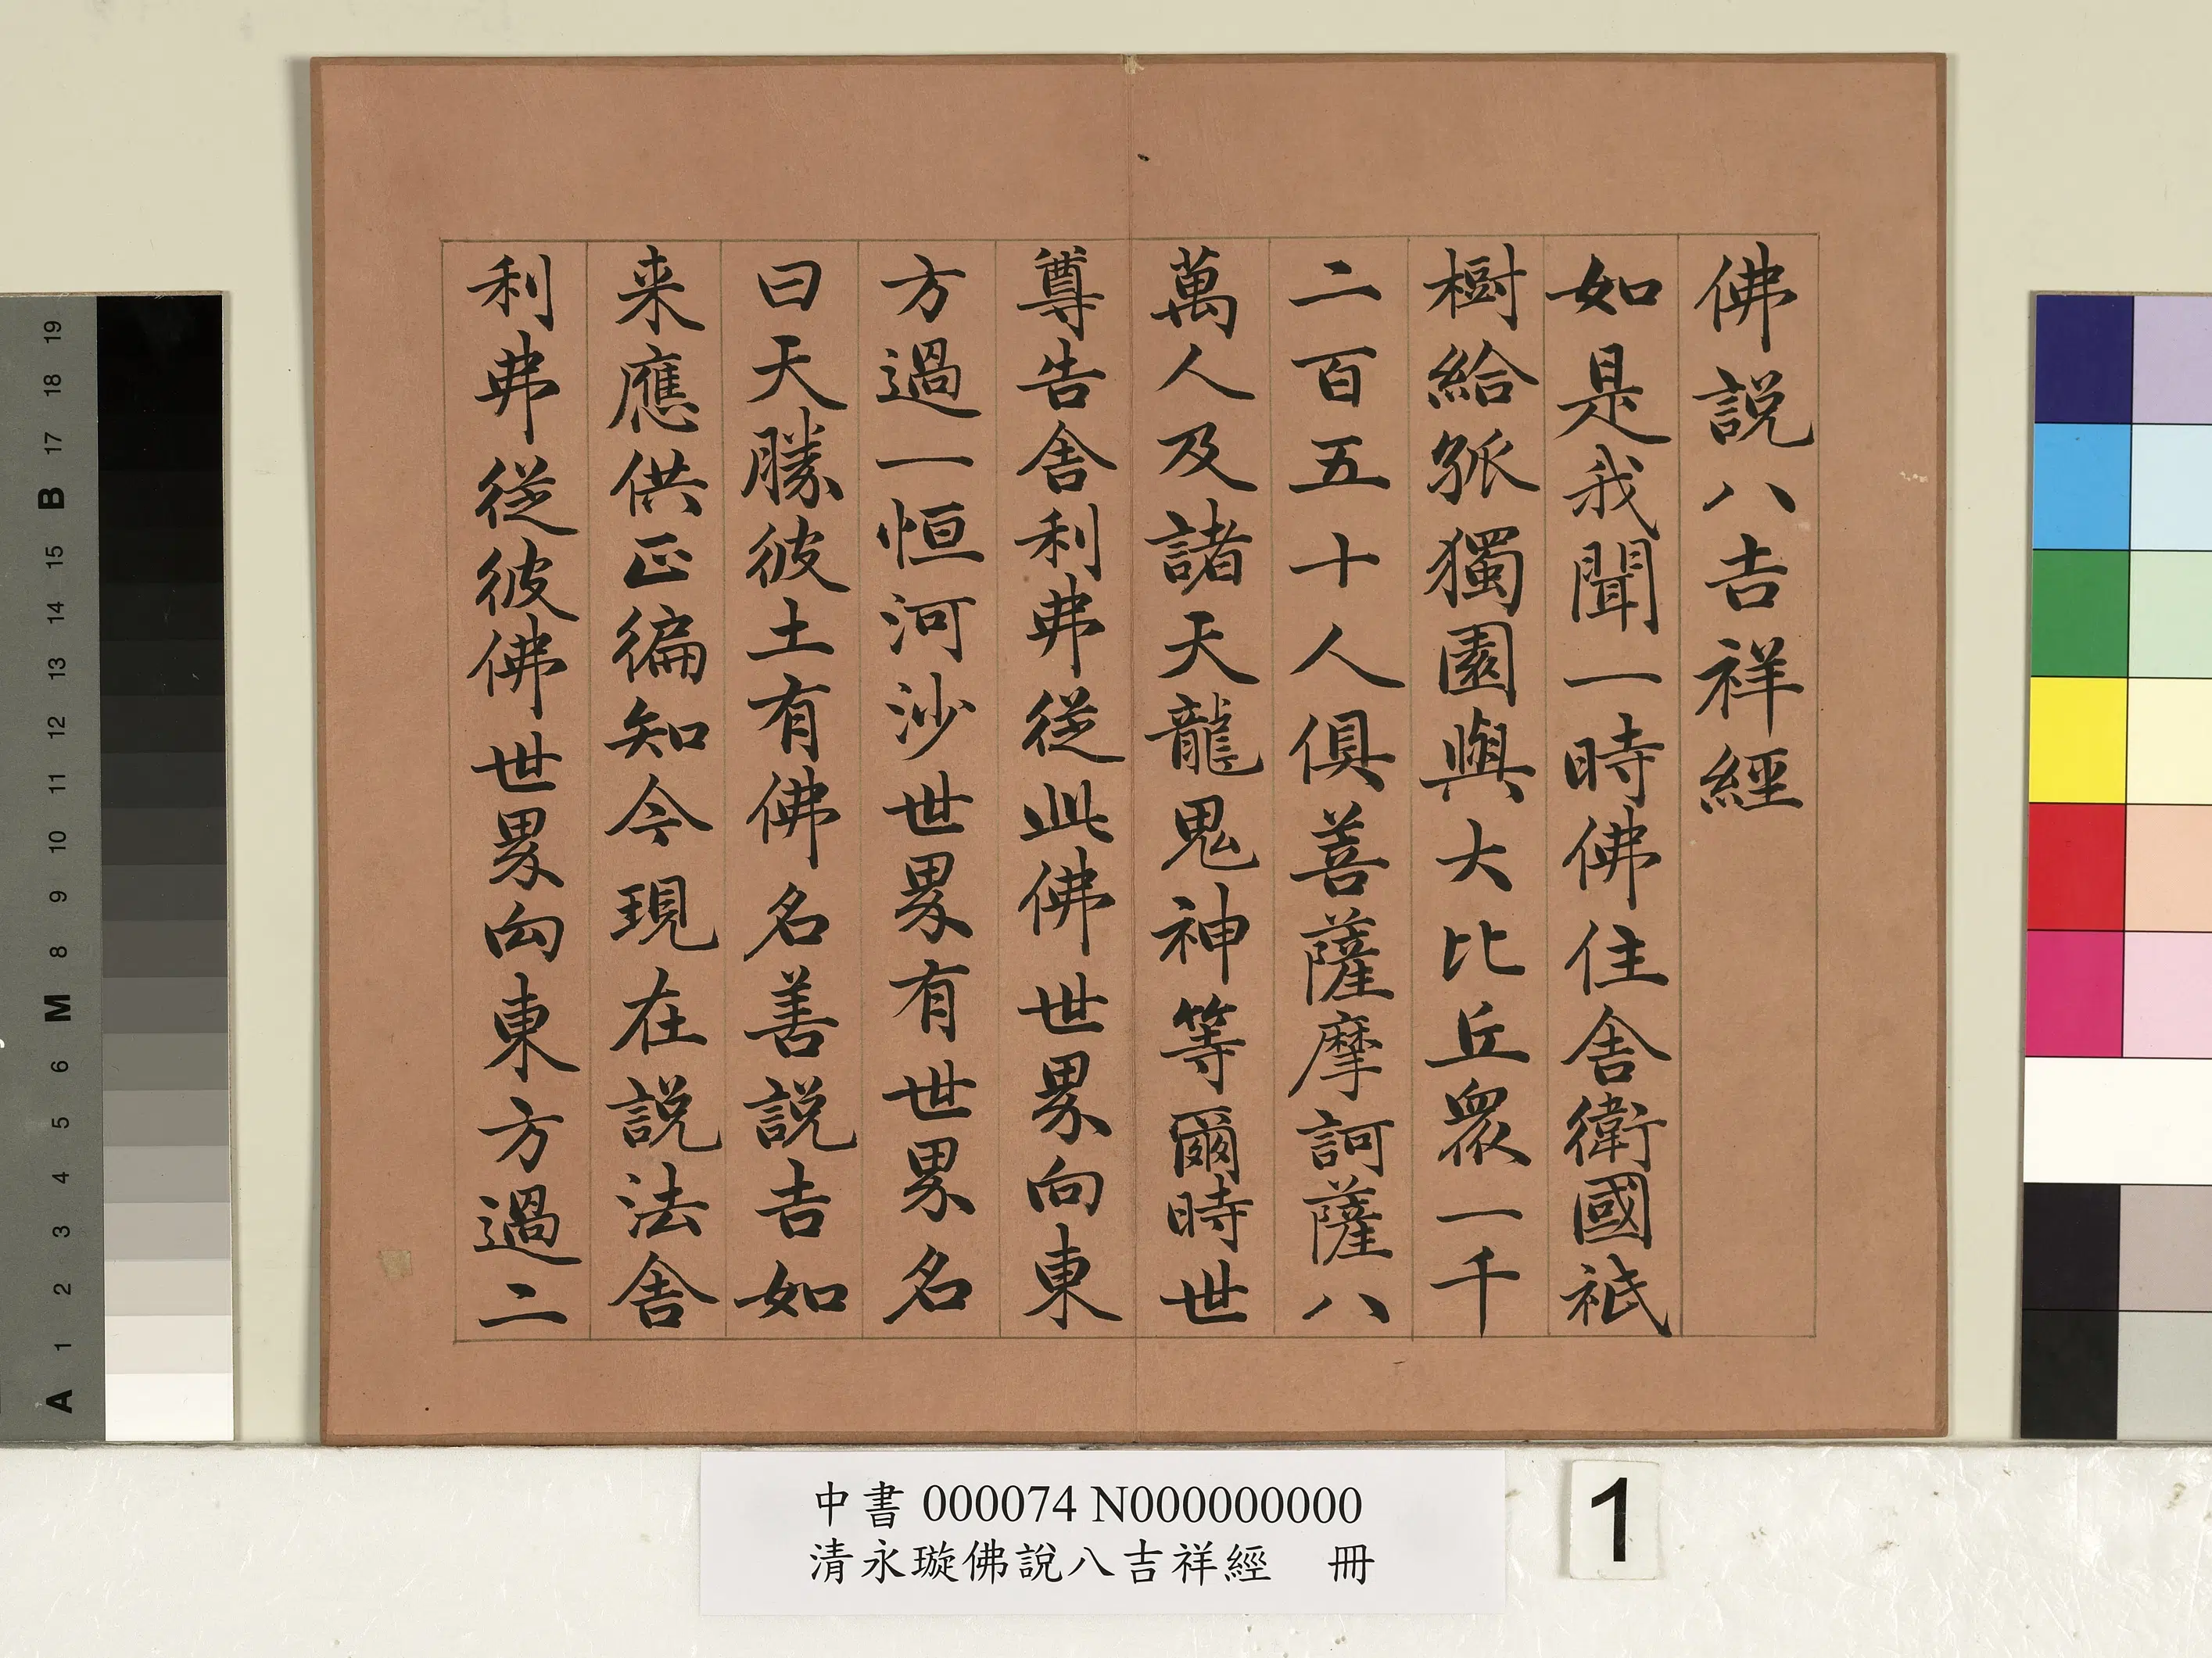 佛説八吉祥經
如是我聞一時佛住舍衛國祇
樹給孤獨園與大比丘眾一千
二百五十人俱菩薩摩訶薩八
萬人及諸天龍鬼神等爾時世
尊告舍利弗從此佛世界向東
方過一恒河沙世界有世界名
曰天勝彼土有佛名善説吉如
来應供正徧知今現在説法舍
利弗從彼佛世界向東方過二
中書 000074 N000000000
清永璇佛說八吉祥經 冊
1
19
18
17
B
15
14
13
12
11
10
9
8
M
6
5
4
3
2
1
A